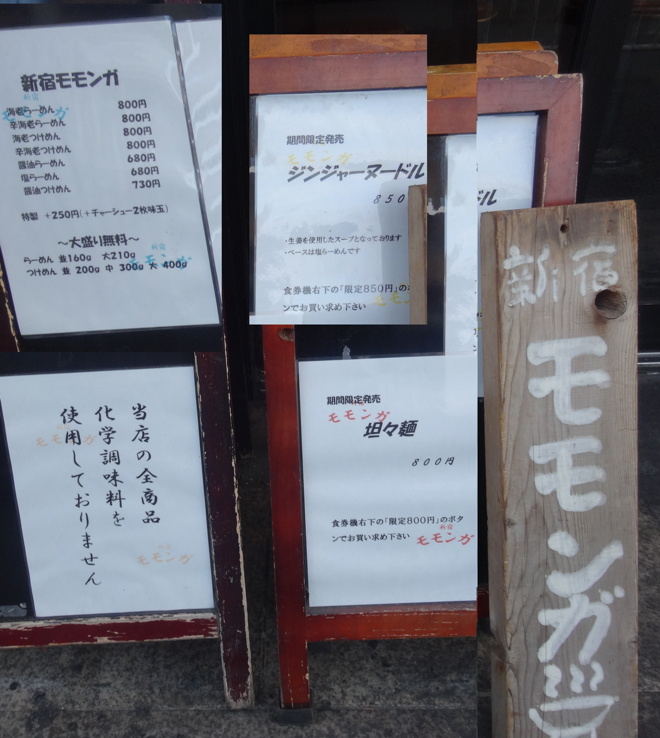 新宿モモンガ
海老らーめん 800円
辛海老らーめん 800円
海老つけめん 800円
辛海老つけめん 800円
醤油らーめん 680円
塩らーめん 680円
醤油つけめん 730円
特製 +250円(+チャーシュー2枚味玉)
～大盛り無料～
らーめん 並160g 大210g
つけめん 並 200g 中 300g 大 400g
新宿
モモンガ
当店の全商品
化学調味料を
使用しておりません
モモンガ
モモンガ
期間限定発売
モモンガ
ジンジャーヌードル
850
・生姜を使用したスープとなっております
・ベースは塩らーめんです
食券機右下の「限定850円」のボ
ンでお買い求め下さい
モモン
ル
期間限定発売
モモンガ
坦々麺
800円
食券機右下の「限定800円」のボタ
ンでお買い求め下さい
新宿
モモンガ
新宿
モモンガ